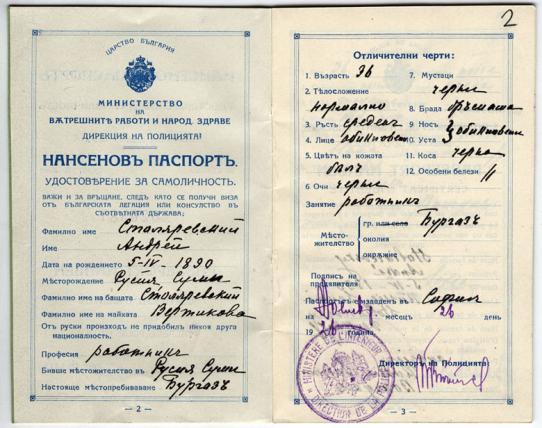 ЦАРСТВО БЪЛГАРИЯ
МИНИСТЕРСТВО
НА
ВѪТРЕШНИТѢ РАБОТИ И НАРОД. ЗДРАВЕ
ДИРЕКЦИЯ НА ПОЛИЦИЯТА
НАНСЕНОВЪ ПАСПОРТЪ.
УДОСТОВѢРЕНИЕ ЗА САМОЛИЧНОСТЬ.
ВАЖИ И ЗА ВРЪЩАНЕ, СЛЕДЪ КАТО СЕ ПОЛУЧИ ВИЗА
ОТЪ БЪЛГАРСКАТА ЛЕГАЦИЯ ИЛИ КОНСУЛСТВО ВЪ
СЪОТВѢТНАТА ДЪРЖАВА;
Фамилно име Столяревский
Име Андрей
Дата на рождението 5-IV-1890
Месторождение Русия
Фамилно име на бащата Столяревский
Фамилно име на майката
Отъ руски произходъ не придобилъ никоя друга
националность.
Професия работникъ
Бивше мѣстожителство въ Русия
Настояще местопребиваване Бургазъ
— 2 —
2
Отличителни черти:
1. Възрасть 36
2. Тѣлосложение
нормално
3. Ръстъ среденъ
4. Лице обикновен
5. Цвѣтъ на кожата
бялъ
6. Очи черни
7. Мустаци
черни
8. Брада бръсната
9. Носъ обикновенъ
10. Уста
11. Коса черна
12. Особени белези //
Занятие работникъ
Мѣсто-
жителство
гр. или село Бургазъ
околия
окрѫжие
Подпись на
предявителя
Паспортътъ издаденъ въ София
на месецъ 26 день
19 26 год.
Директоръ на Полицията:
— 3 —